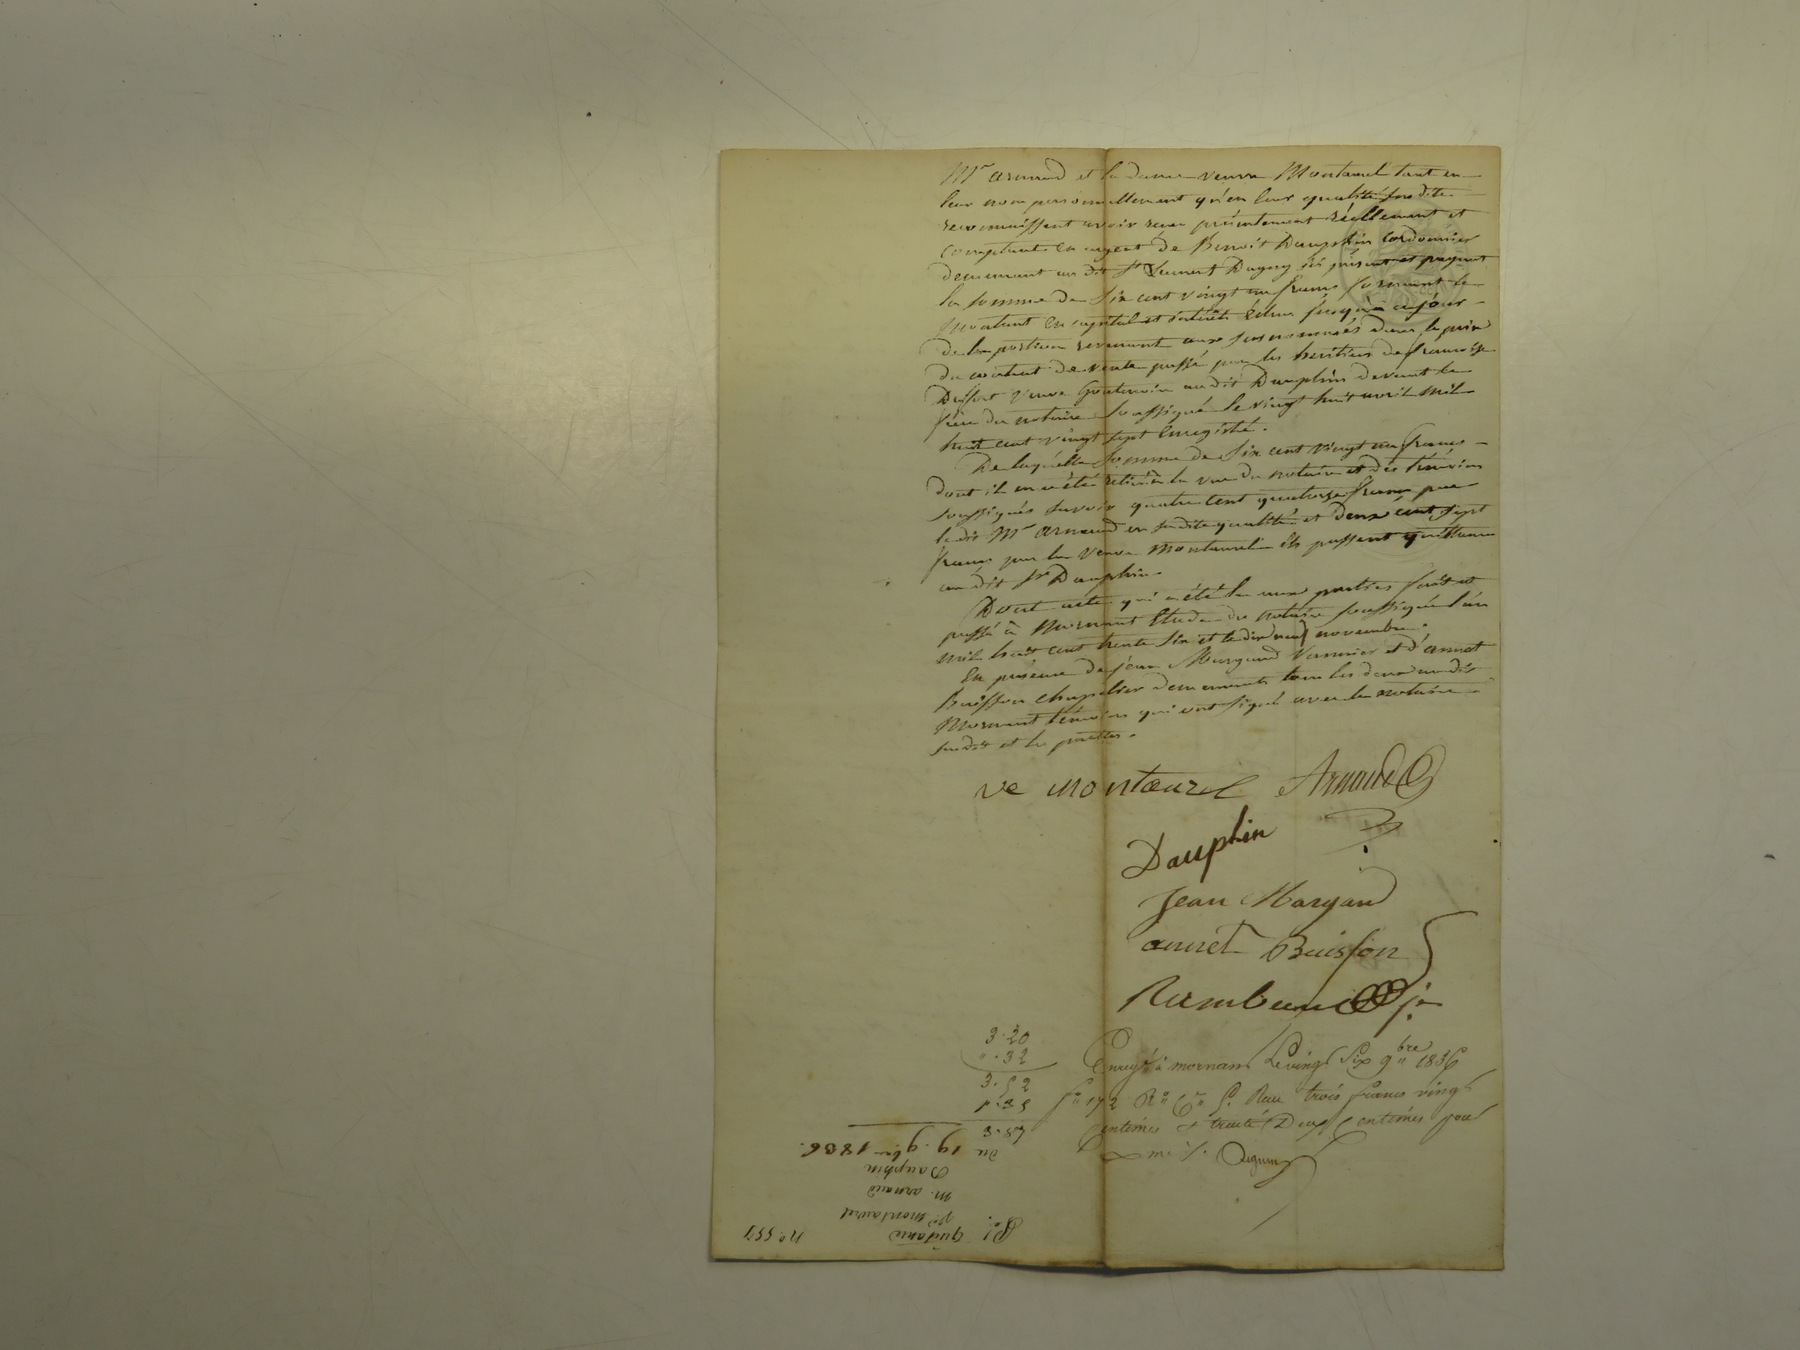 Mr arnaud et la dame veuve Montaurel tant en
leur nom personnellement qu'en leur qualité susdite
reconnaissent avoir reçu présentement réellement et
comptant en argent de Benoit Dauphin cordonnier
demeurant au dit St Laurent Dagny ici présent et payant
la somme de six cent vingt un francs formant le
montant en capital et intérêts échus jusqu'à ce jour
de la portion revenant aux susnommés dans le prix
du contrat de vente passé par les héritiers de françoise
veuve audit Dauphin devant le
père du notaire soussigné le vingt huit avril mil
huit cent vingt sept enregistré.
De laquelle somme de six cent vingt un francs
dont il en a été retiré à la vue du notaire et des témoins
soussignés savoir quatre cent quatorze francs par
le dit Mr arnaud en sa dite qualité et deux cent sept
francs par la veuve Montaurel ils passent quittance
au dit sr Dauphin.
Dont acte qui a été lu aux parties fait et
passé à Mornant Etude du notaire soussigné l'an
mil huit cent trente six et le dix neuf novembre.
En présence de jean Margand vannier et d'annet
Buisson chapelier demeurants tous les deux au dit
Mornant témoins qui ont signé avec le notaire
susdit et les parties.
ve montaurel Arnaud
Dauphin
jean Margand
annet Buisson
Rambaud je
3.20
".32
3.52
1.35
4.87
Enregé à mornant Le vingt Six 9bre 1836
fo 172 Ro Ce 5. Reçu trois francs vingt
centimes & trente Deux Centimes pour
No. 557
Quitance
ve montaurel
M. arnaud
Dauphin
Du 19 9bre 1836.